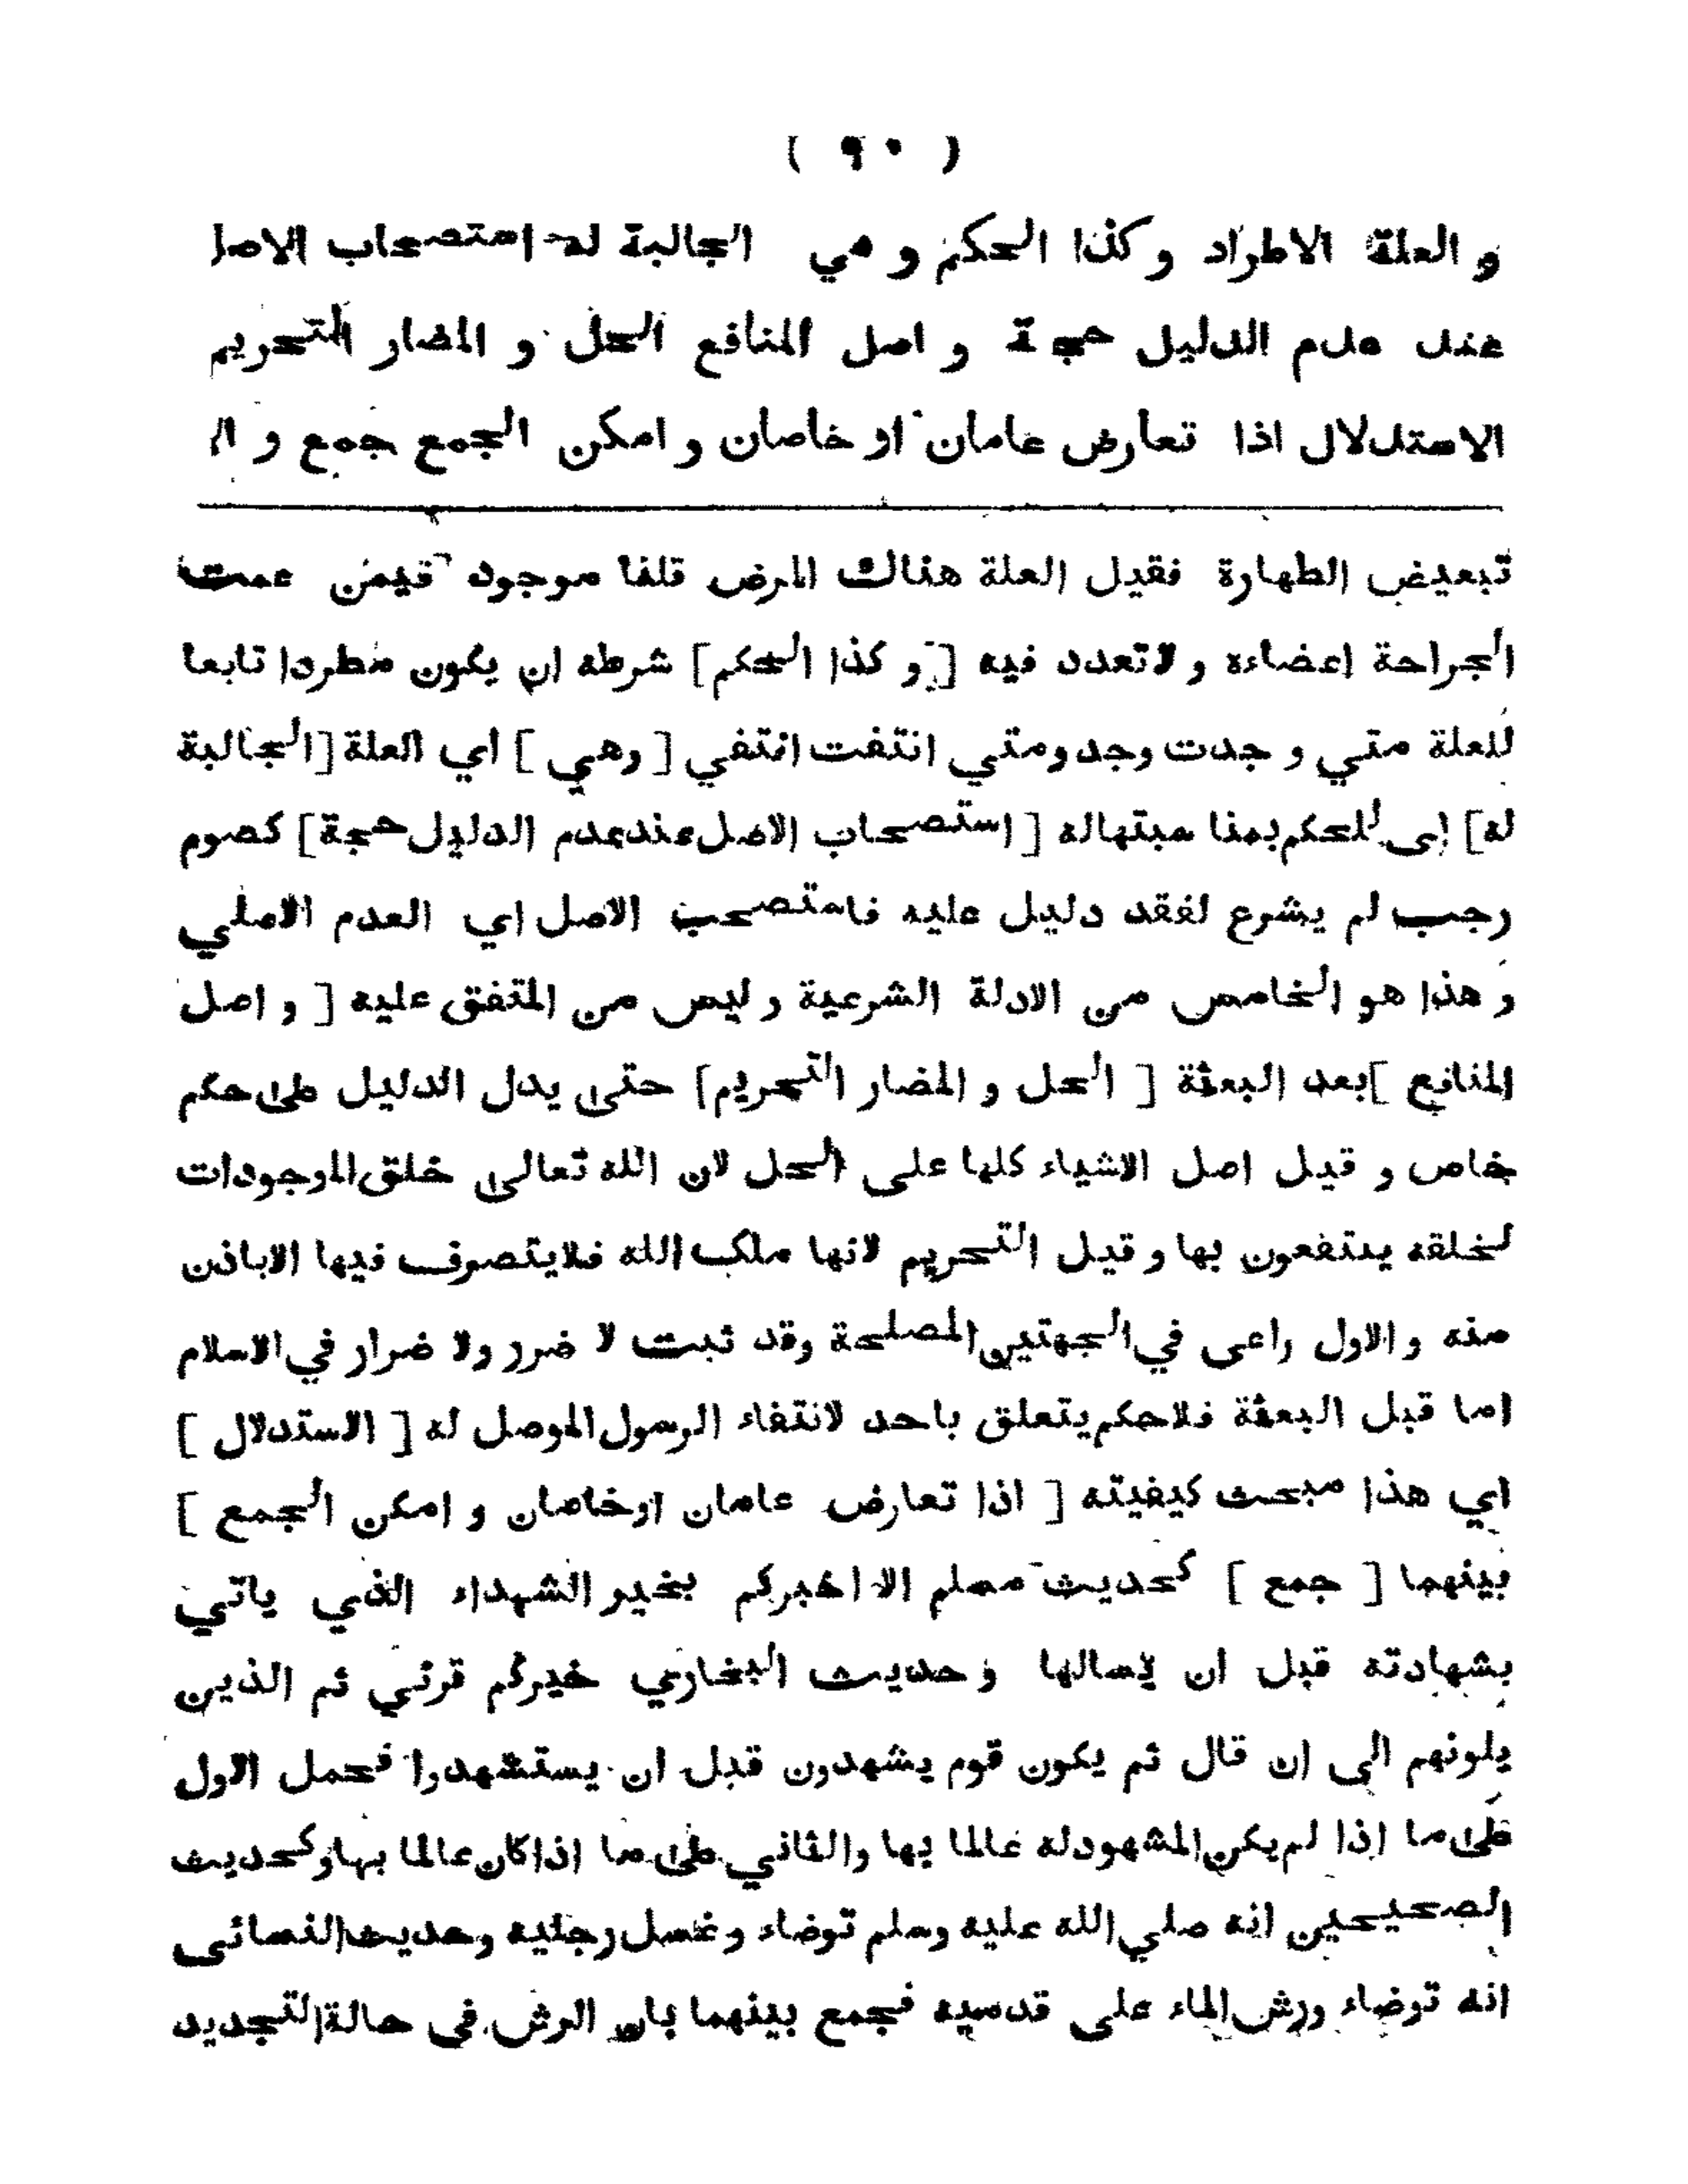 ( ٩٠ )
و العلة الاطراد وكذا الحكم و هي الجالبة له استصحاب الاصل
عند عدم الدليل حجة و اصل المنافع الحل و المضار التحريم
الاستدلال اذا تعارض عامان او خاصان و امكن الجمع جمع و الا
تبعيض الطهارة فقيل العلة هناك المرض قلنا موجود فيمن عمت
الجراحة اعضاءه و لا تعدد فيه [ و كذا الحكم ] شرطه ان يكون مطردا تابعا
للعلة متي و جدت وجد ومتي انتفت انتفي [ وهي ] اي العلة [ الجالبة
له ] اى للحكم بمنا سبتهاله [ استصحاب الاصل عند عدم الدليل حجة ] كصوم
رجب لم يشرع لفقد دليل عليه فاستصحب الاصل اي العدم الاصلي
و هذا هو الخامس من الادلة الشرعية و ليس من المتفق عليه [ و اصل
المنافع ] بعد البعثة [ الحل و المضار التحريم ] حتى يدل الدليل على حكم
خاص و قيل اصل الاشياء كلها على الحل لان الله تعالى خلق الموجودات
لخلقه ينتفعون بها و قيل التحريم لانها ملك الله فلا يتصرف فيها الا باذن
منه و الاول راعى في الجهتين المصلحة وقد ثبت لا ضرر ولا ضرار في الاسلام
اما قبل البعثة فلا حكم يتعلق باحد لانتفاء الرسول الموصل له [ الاستدلال ]
اي هذا مبحث كيفيته [ اذا تعارض عامان او خاصان و امكن الجمع ]
بينهما [ جمع ] كحديث مسلم الا اخبركم بخير الشهداء الذي ياتي
بشهادته قبل ان يسالها و حديث البخاري خيركم قرني ثم الذين
يلونهم الى ان قال ثم يكون قوم يشهدون قبل ان يستشهدوا فحمل الاول
على ما اذا لم يكن المشهود له عالما بها والثاني على ما اذا كان عالما بها وكحديث
الصحيحين انه صلي الله عليه وسلم توضاء و غسل رجليه وحديث النسائى
انه توضاء ورش الماء على قدميه فجمع بينهما بان الرش فى حالة التجديد